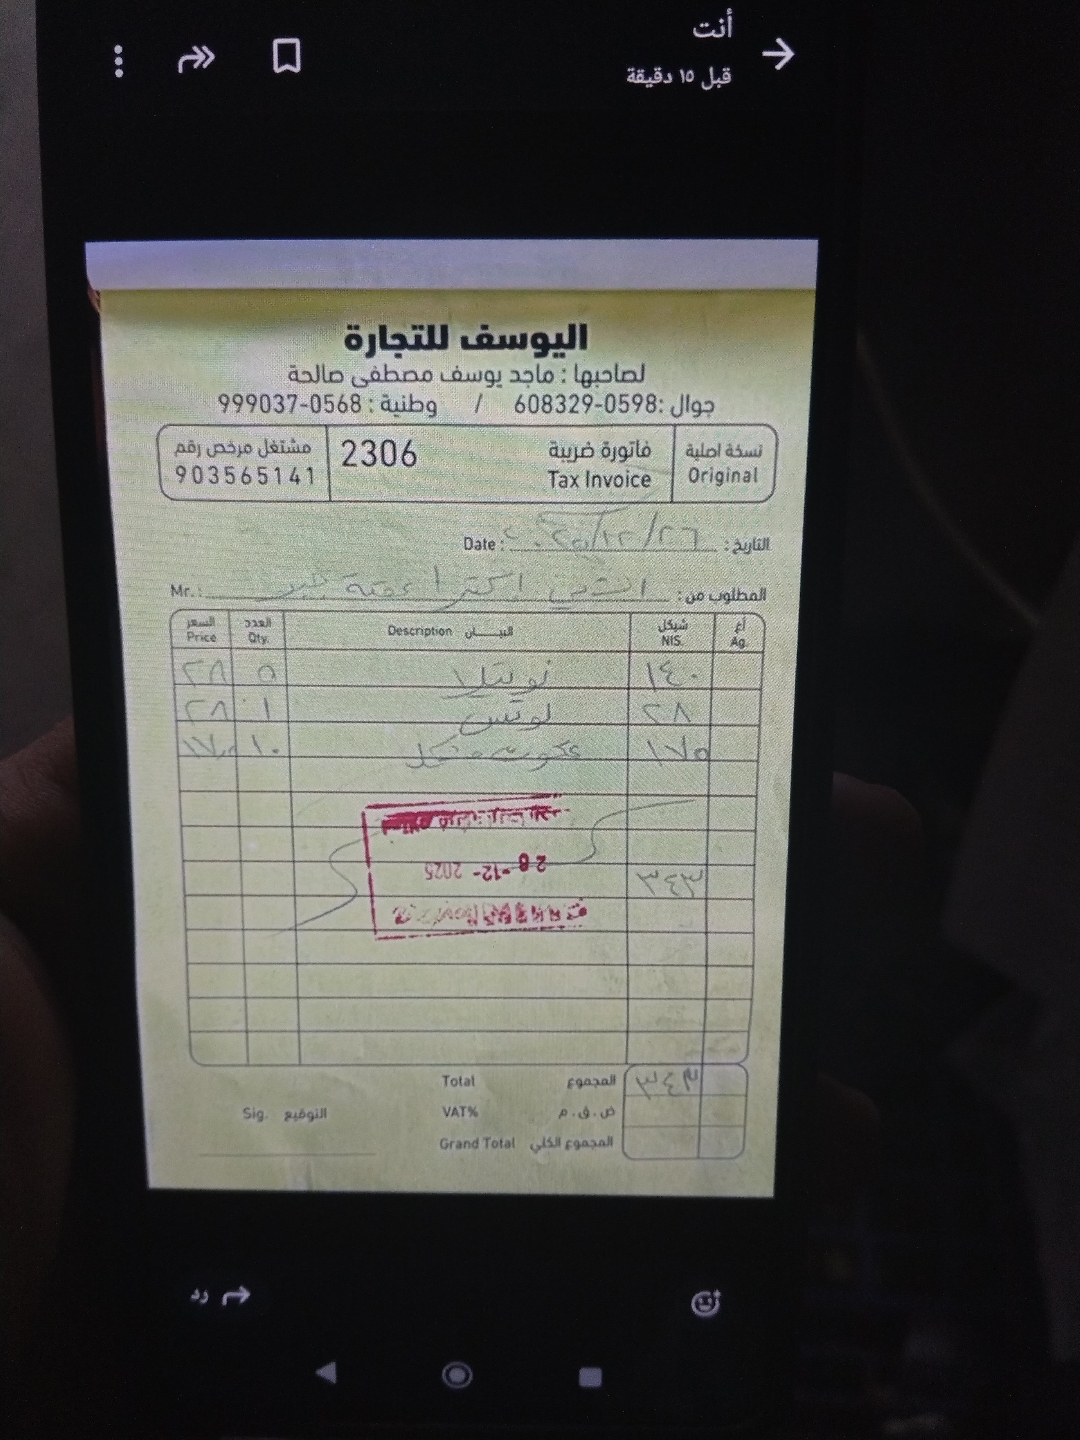 أنت
قبل ١٥ دقيقة
اليوسف للتجارة
لصاحبها : ماجد يوسف مصطفى صالحة
جوال :0598-608329 / وطنية : 0568-999037
نسخة اصلية Original
فاتورة ضريبة Tax Invoice
2306
مشتغل مرخص رقم 903565141
التاريخ : ٢٠٢٥/١٢/٢٦ Date :
المطلوب من : اكترا عقبة جبر Mr. :
أغ. Ag. شيكل NIS. البيــــان Description العدد Qty. السعر Price
١٤٠ نوتيلا ٥ ٢٨
٢٨ لوتس ١ ٢٨
١٧٥ ١٠ ١٧,٥
2025 -12-
٣٤٣
المجموع Total ٣٤٣
ض.ق.م VAT%
التوقيع Sig.
المجموع الكلي Grand Total
رد